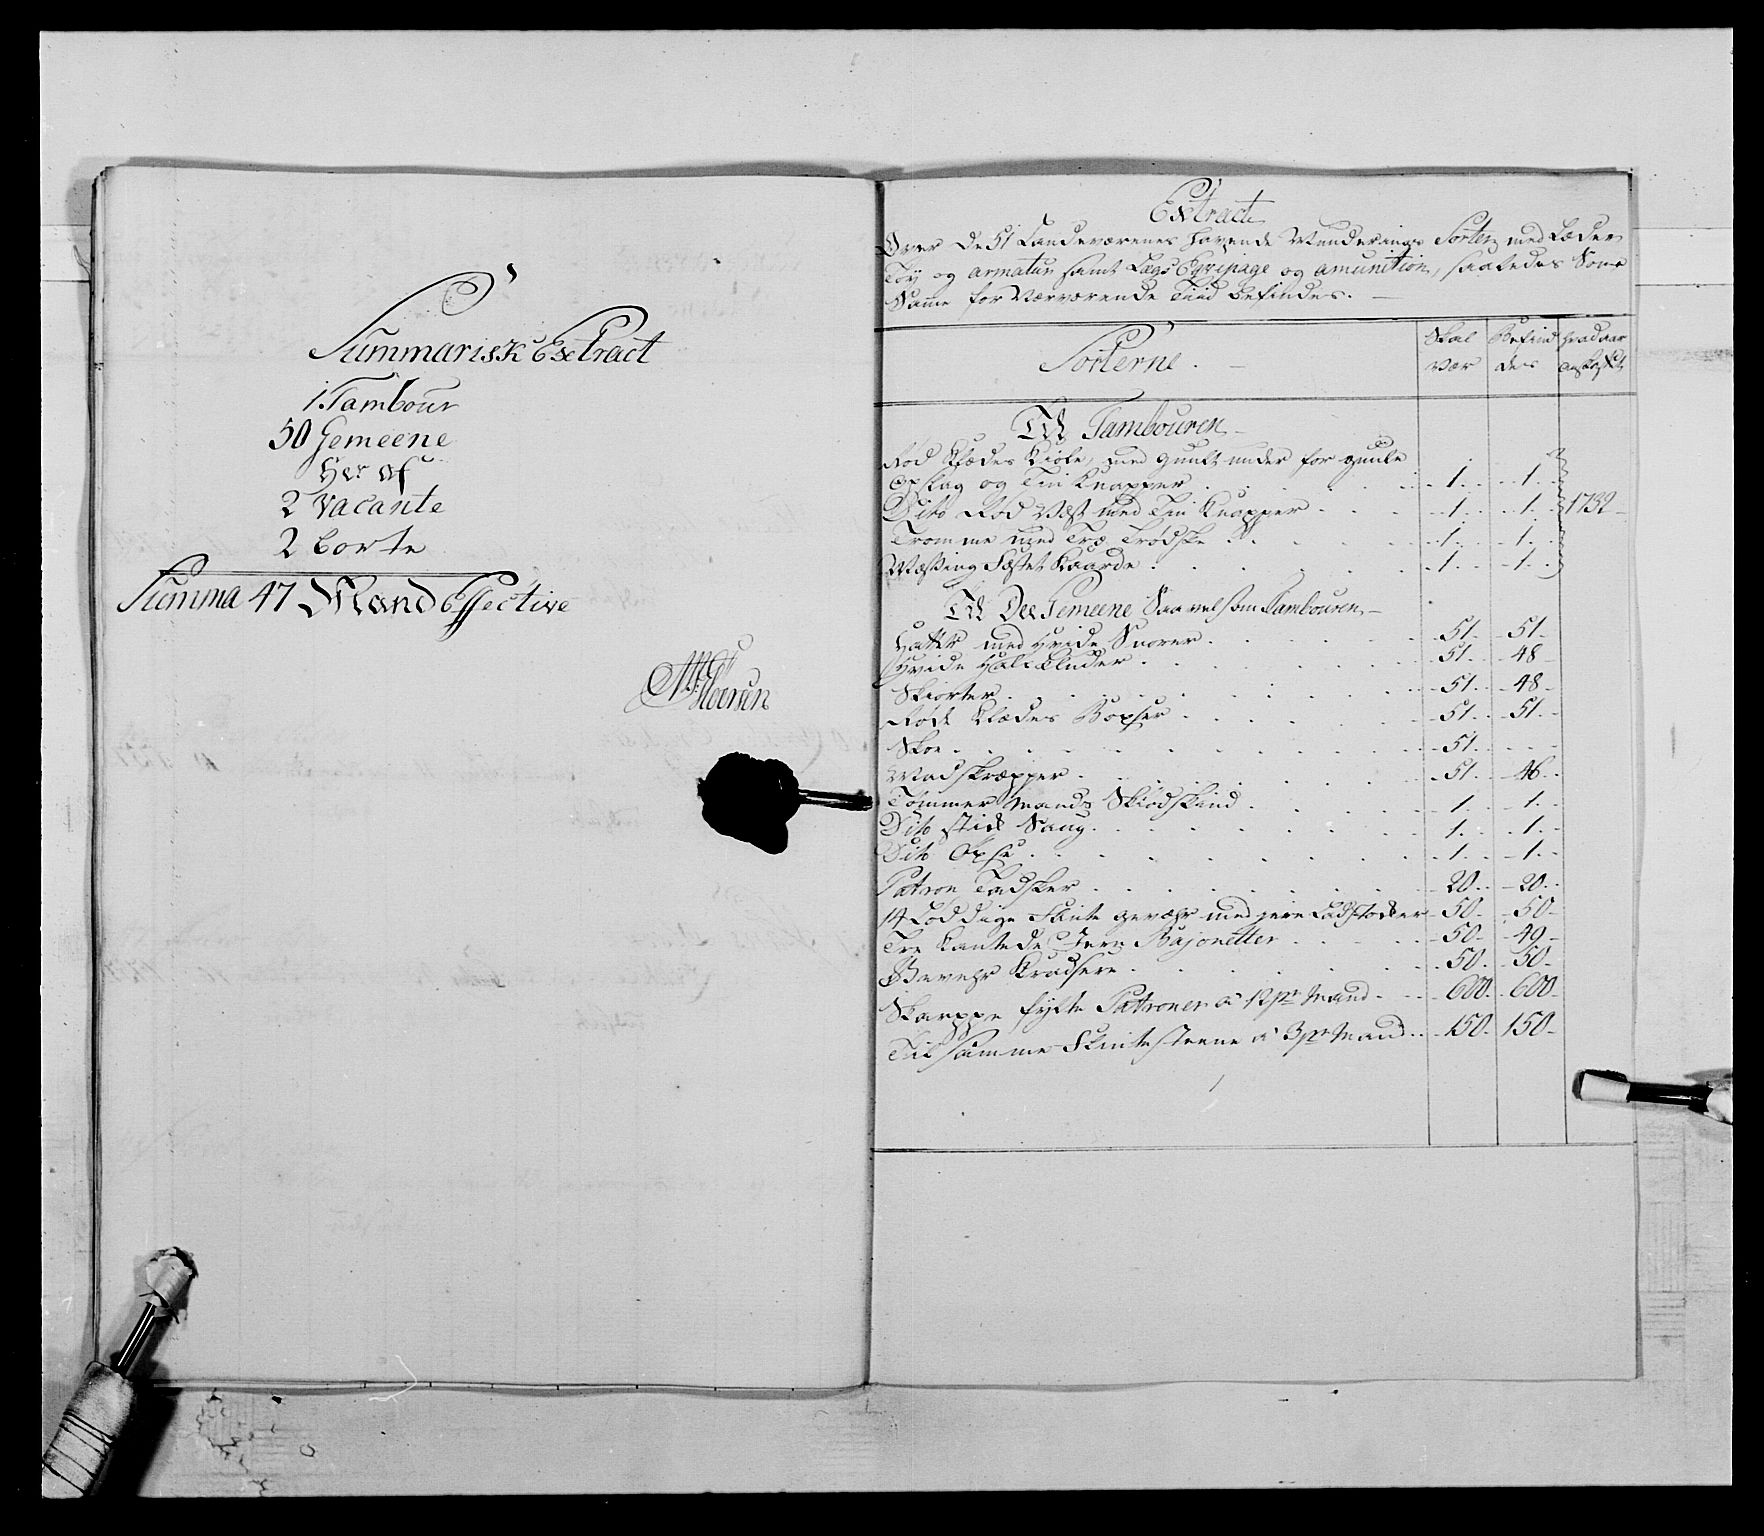 Summarisk Extract
1. Tambour
50 Gemeene
Her af
2 Vacante
2 borte
Summa 47 Mand Effective
Extract
Over De 51 Landeværnes havende Munderings Sorter med Læder
Tøy og armatur samt Lægs Eqvipage og amunition, saaledes Som
Samme for Nærværende Tiid befindes.
Sorterne. Skal Befind hvad aar
vær des
Till Tambouren
Rød Klædes Kiole, med guult under for guule
Opslag og Tin Knapper 1. 1.
Dito Rød Vest med Tin Knapper 1. 1. 1732
Tromme med Træ 1. 1.
Messing Fæstet Kaarde 1. 1.
Till Dee Gemeene Saavelsom Tambouren
Hatte med Hvide Snorer 51. 51.
Hvide Halsbinder 51. 48
Skiorter 51. 48
Røde Klædes Boxser 51. 51.
Skoe 51.
Madskræpper 51. 46.
Tømmermands Skiødskind 1. 1.
Dito stik Saug 1. 1.
Dito Øxse 1. 1.
Patron Tadsker 20. 20.
14 Loddige Flinte gevæhr med Jern Ladstokker 50. 50
Tre Kantede Jern Bajonetter 50 49
Gevehr Kradsere 50. 50
Skarppe fyldte Patroner a 12 pr Mand 600. 600
Till samme Flintesteene a 3 pr Mand 150. 150